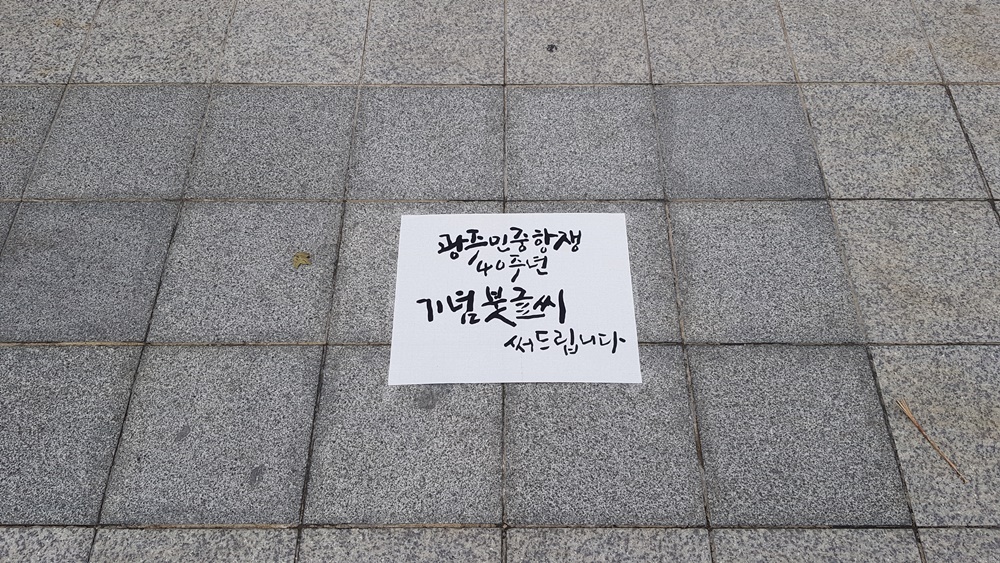 광주민중항쟁
40주년
기념붓글씨
써드립니다